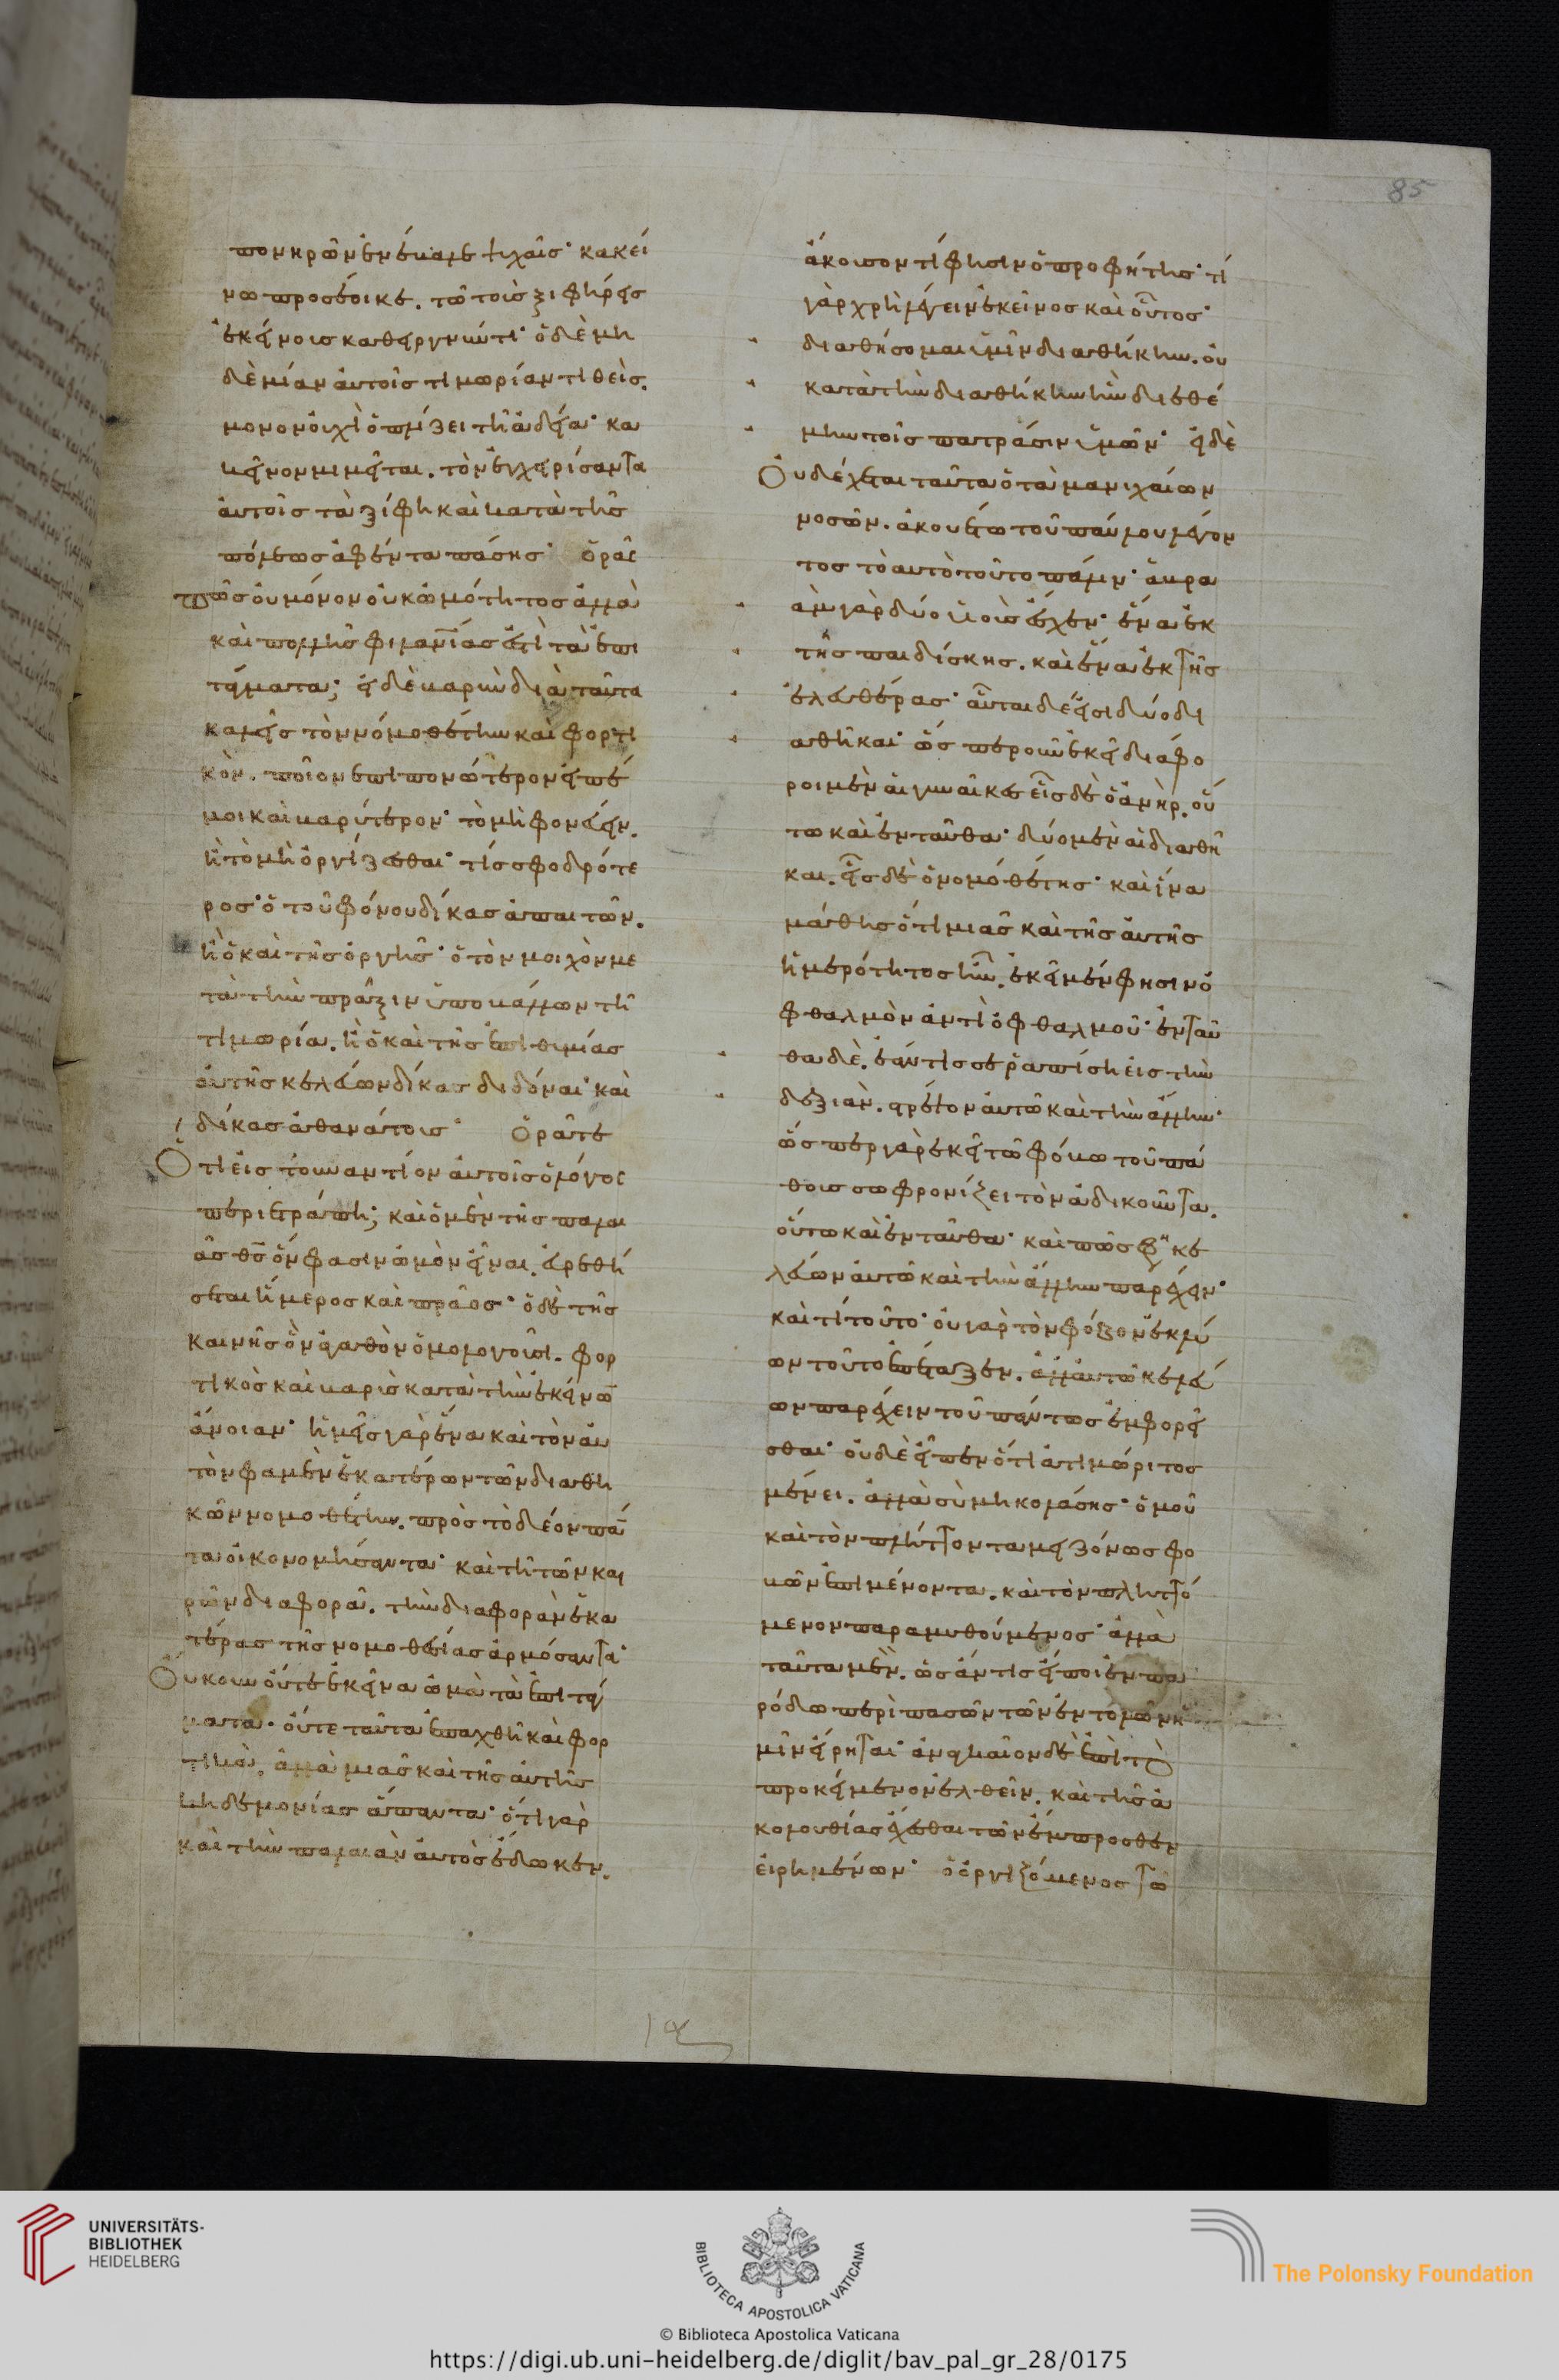 85
πονηρῶν ἐνέβαλε ψυχαῖς· κἀκεί
νω προσέοικε. τῶ τοὺς ξιφήρεις
ἐκείνους καθειργνύντι· ὁ δὲ μη
δὲ μίαν αὐτοῖς τιμωρίαν τιθεὶς.
μονονουχὶ ὁπλίζει τῆ ἀδεία· κα
κεῖνον μιμεῖται. τὸν ἐγχειρίσαντα
αὐτοῖς τὰ ξίφη καὶ κατὰ τῆς
πόλεως ἀφέντα πάσης· ὁρᾶς
πῶς οὐ μόνον οὐκ ὠμότητος ἀλλὰ
καὶ πολλῆς φιλανθρωπίας ἐστὶ τὰ ἐπι
τάγματα; εἰ δὲ βαρὺν διὰ ταῦτα
καλεῖς τὸν νομοθέτην καὶ φορτι
κὸν. ποῖον ἐπιπονώτερον εἰπέ
μοι καὶ βαρύτερον· τὸ μὴ φονεύειν.
ἢ τὸ μὴ ὀργίζεσθαι· τίς σφοδρότε
ρος· ὁ τοῦ φόνου δίκας ἀπαιτῶν.
ἢ ὁ καὶ τῆς ὀργῆς· ὁ τὸν μοιχὸν με
τὰ τὴν πρᾶξιν ὑποβάλλων τῆ
τιμωρία. ἢ ὁ καὶ τῆς ἐπιθυμίας
αὐτῆς κελεύων δίκας διδόναι· καὶ
δίκας ἀθανάτους· ὁρᾶτε
Ὅτι εἰς τουναντίον αὐτοῖς ὁ λόγος
περιετράπη; καὶ ὁ μὲν τῆς παλαι
ᾶς θς ὅν φασιν ὠμὸν εἶναι. εὑρεθή
σεται ἥμερος καὶ πρᾶος· ὁ δὲ τῆς
καινῆς ὃν ἀγαθὸν ὁμολογοῦσι. φορ
τικὸς καὶ βαρὺς κατὰ τὴν ἐκείνων
ἄνοιαν· ἡμεῖς γὰρ ἕνα καὶ τὸν αὐ
τὸν φαμὲν ἑκατέρων τῶν διαθη
κῶν νομοθέτην. πρὸς τὸ δέον πάν
τα οἰκονομήσαντα· καὶ τῆ τῶν και
ρῶν διαφορᾶ. τὴν διαφορὰν ἑκα
τέρας τῆς νομοθεσίας ἁρμόσαντα·
Οὐκοῦν οὔτε ἐκεῖνα ὠμὰ τὰ ἐπιτάγ
ματα· οὔτε ταῦτα ἐπαχθῆ καὶ φορ
τικὰ. ἀλλὰ μιᾶς καὶ τῆς αὐτῆς
κηδεμονίας ἅπαντα· ὅτι γὰρ
καὶ τὴν παλαιὰν αὐτὸς ἔδωκεν.
ἄκουσον τί φησιν ὁ προφήτης· τί
γὰρ χρὴ λέγειν ἐκεῖνος καὶ οὗτος·
διαθήσομαι ὑμῖν διαθήκην. οὐ
κατὰ τὴν διαθήκην ἣν διεθέ
μην τοῖς πατράσιν ὑμῶν· εἰ δὲ
Οὐ δέχεται ταῦτα ὁ τὰ μανιχαίων
νοσῶν. ἀκουέτω τοῦ παύλου λέγον
τος τὸ αυτὸ τοῦτο πάλιν· ἄβρα
ὰμ γὰρ δύο υἱοὺς ἔσχεν· ἕνα ἐκ
τῆς παιδίσκης. καὶ ἕνα ἐκ τῆς
ἐλευθέρας· αὗται δέ εἰσι δύο δι
αθῆκαι· ὥσπερ οὖν ἐκεῖ διάφο
ροι μὲν αἱ γυναῖκες εἷς δὲ ὁ ἀνὴρ. οὕ
τω καὶ ἐνταῦθα· δύο μὲν αἱ διαθῆ
και. εἷς δὲ ὁ νομοθέτης· καὶ ἵνα
μάθης ὅτι μιᾶς καὶ τῆς αὐτῆς
ἡμερότητος ἦν. ἐκεῖ μέν φησιν ὀ
φθαλμὸν ἀντὶ ὀφθαλμοῦ· ἐνταῦ
θα δὲ. ἐάν τίς σε ῥαπίση εἰς τὴν
δεξιὰν. στρέψον αὐτῶ καὶ τὴν ἄλλην·
ὥσπερ γὰρ ἐκεῖ τῶ φόβω τοῦ πά
θους σωφρονίζει τὸν ἀδικοῦντα.
οὕτω καὶ ἐνταῦθα· καὶ πῶς φη κε
λεύων αὐτῶ καὶ τὴν ἄλλην παρέχειν·
καὶ τί τοῦτο· οὐ γὰρ τὸν φόβον ἐκλύ
ων τοῦτο ἐπέταξεν. ἀλλ' αὐτῶ κελεύ
ων παρέχειν τοῦ παντὸς ἐμφορεῖ
σθαι· οὐδὲ εἶπεν ὅτι ἀτιμώρητος
μένει. ἀλλὰ σὺ μὴ κολάσης· ὁμοῦ
καὶ τὸν πλήττοντα μειζόνως φο
βῶν ἐπιμένοντα. καὶ τὸν πληττό
μενον παραμυθούμενος· ἀλλὰ
ταῦτα μὲν. ὡς ἄν τις εἴποι ἐν πα
ρόδω περὶ πασῶν τῶν ἐντολῶν ἡ
μῖν εἴρηται· ἀναγκαῖον δὲ ἐπὶ τὸ
προκείμενον ἐλθεῖν. καὶ τῆς ἀ
κολουθίας ἔχεσθαι τῶν ἔμπροσθεν
εἰρημένων· ὁ ὀργιζόμενος τῶ
UNIVERSITÄTS-
BIBLIOTHEK
HEIDELBERG
BIBLIOTECA APOSTOLICA VATICANA
The Polonsky Foundation
© Biblioteca Apostolica Vaticana
https://digi.ub.uni-heidelberg.de/diglit/bav_pal_gr_28/0175